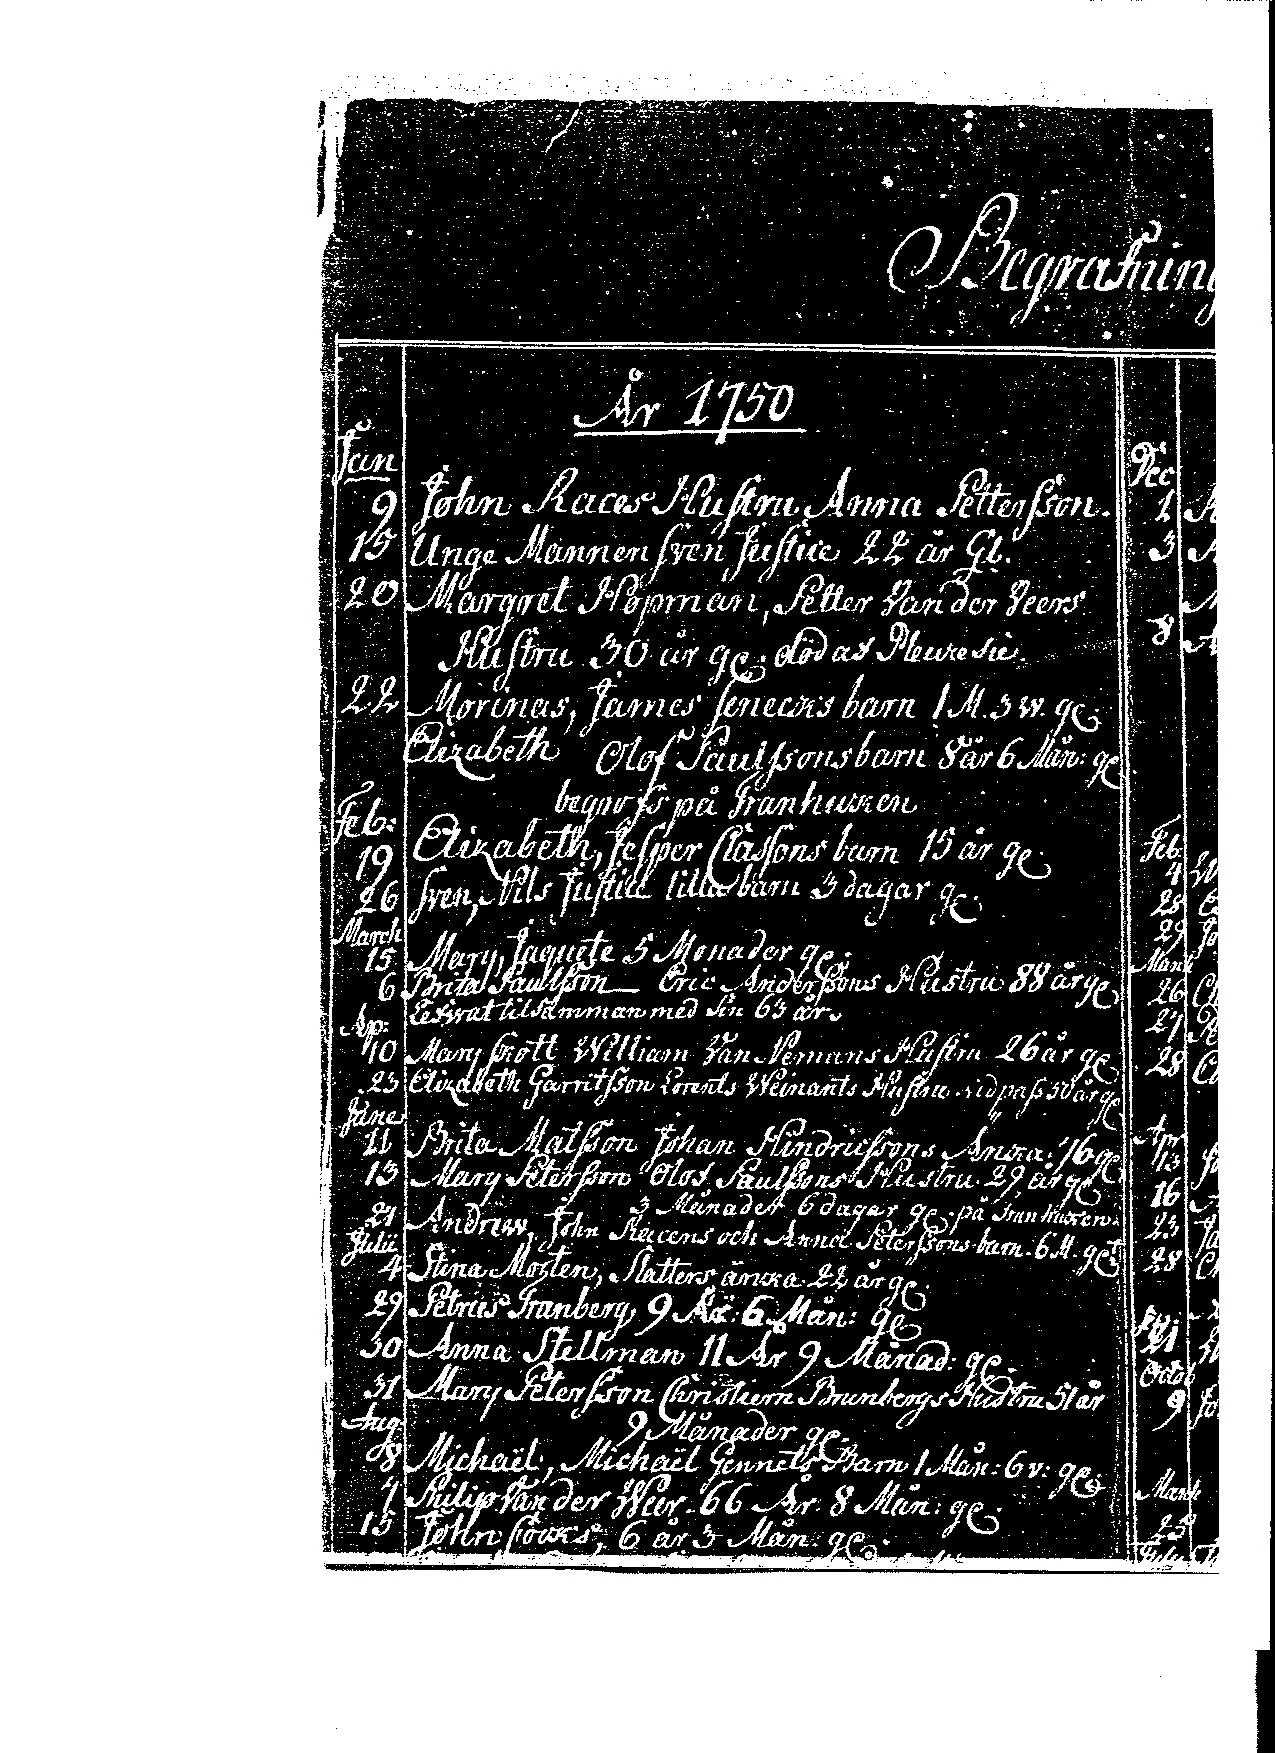 Begrafning
År 1750
Jan
9 John Races Hustru Anna Pettersson.
15 Unge Mannen Sven Justice 22 år Gl.
20 Margret Hopman, Petter Van der Veers
Hustru 30 år gl. död af Pleuresie
22 Morinas, James Senecks barn 1 M. 3 w. gl.
Elizabeth Olof Paulssons barn 8 år 6 Mån: gl
begrofs på Tranhuken
Feb:
19 Elizabeth, Jesper Classons barn 15 år gl.
26 Sven, Nils Justice lilla barn 3 dagar gl.
March
15 Mary, Jaquete 5 Monader gl.
6 Brita Paulsson Eric Anderssons Hustru 88 år gl
Lefwat tilsamman med sin 63 år.
Ap:
10 Mary Skott William Van Nemans Hustru 26 år gl
23 Elizabeth Garritsson Lorents Weinants Hustru vid pass 50 år gl
June
11 Brita Matsson Johan Hindricssons Anka. 76 gl
13 Mary Petersson Olof Paulssons Hustru. 29 år gl
3 Månader 6 dagar gl. på Tranhuken.
21 Andrew, John Racens och Anna Peterssons barn. 6 M. gl
Julii
4 Stina Morten, Slatters äncka 22 år gl.
29 Petrus Tranberg, 9 År: 6 Mån: gl
30 Anna Stellman 11 År 9 Månad: gl.
31 Mary Petersson Christiern Brunbergs Hustru 51 år
9 Månader gl.
Aug
8 Michaël, Michaël Gennets Barn 1 Mån: 6 v: gl.
7 Philip Van der Weer. 66 År. 8 Mån: gl
15 John 6 år 3 Mån: gl.
Dec
1
3
8
Feb
4
28
29
March
26
27
28
Apr
13
16
23
28
21
Octob
9
March
25